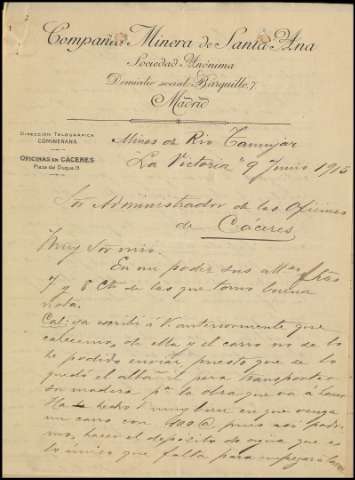 Compañía Minera de Santa Ana
Sociedad Anónima
Domicilio social Barquillo, 7
Madrid
DIRECCIÓN TELEGRÁFICA
COMINERANA
OFICINAS EN CÁCERES
Plaza del Duque, 11
Minas de Rio Tamujar
La Victoria 9 Junio 1915
Sor Administrador de las Oficinas
de Cáceres
Muy Sor mio:
En mi poder sus attas fhas
7 y 8 Cte de las que tomo buena
nota.
Cal: ya escribi á V. anteriormente que
carecemos de ella y el carro no se lo
he podido enviar puesto que se lo
quedó el albañil para transportar
su madera pa la obra que va á hacer
Ha hecho V. muy bien en que venga
un carro con 400 @ pues asi podre-
mos hacer el deposito de agua que es
lo único que falta para empezar á